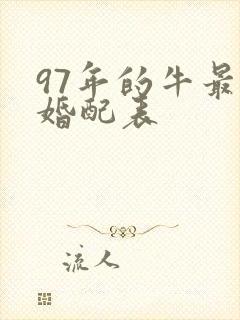 97年的牛最
婚配表
流人